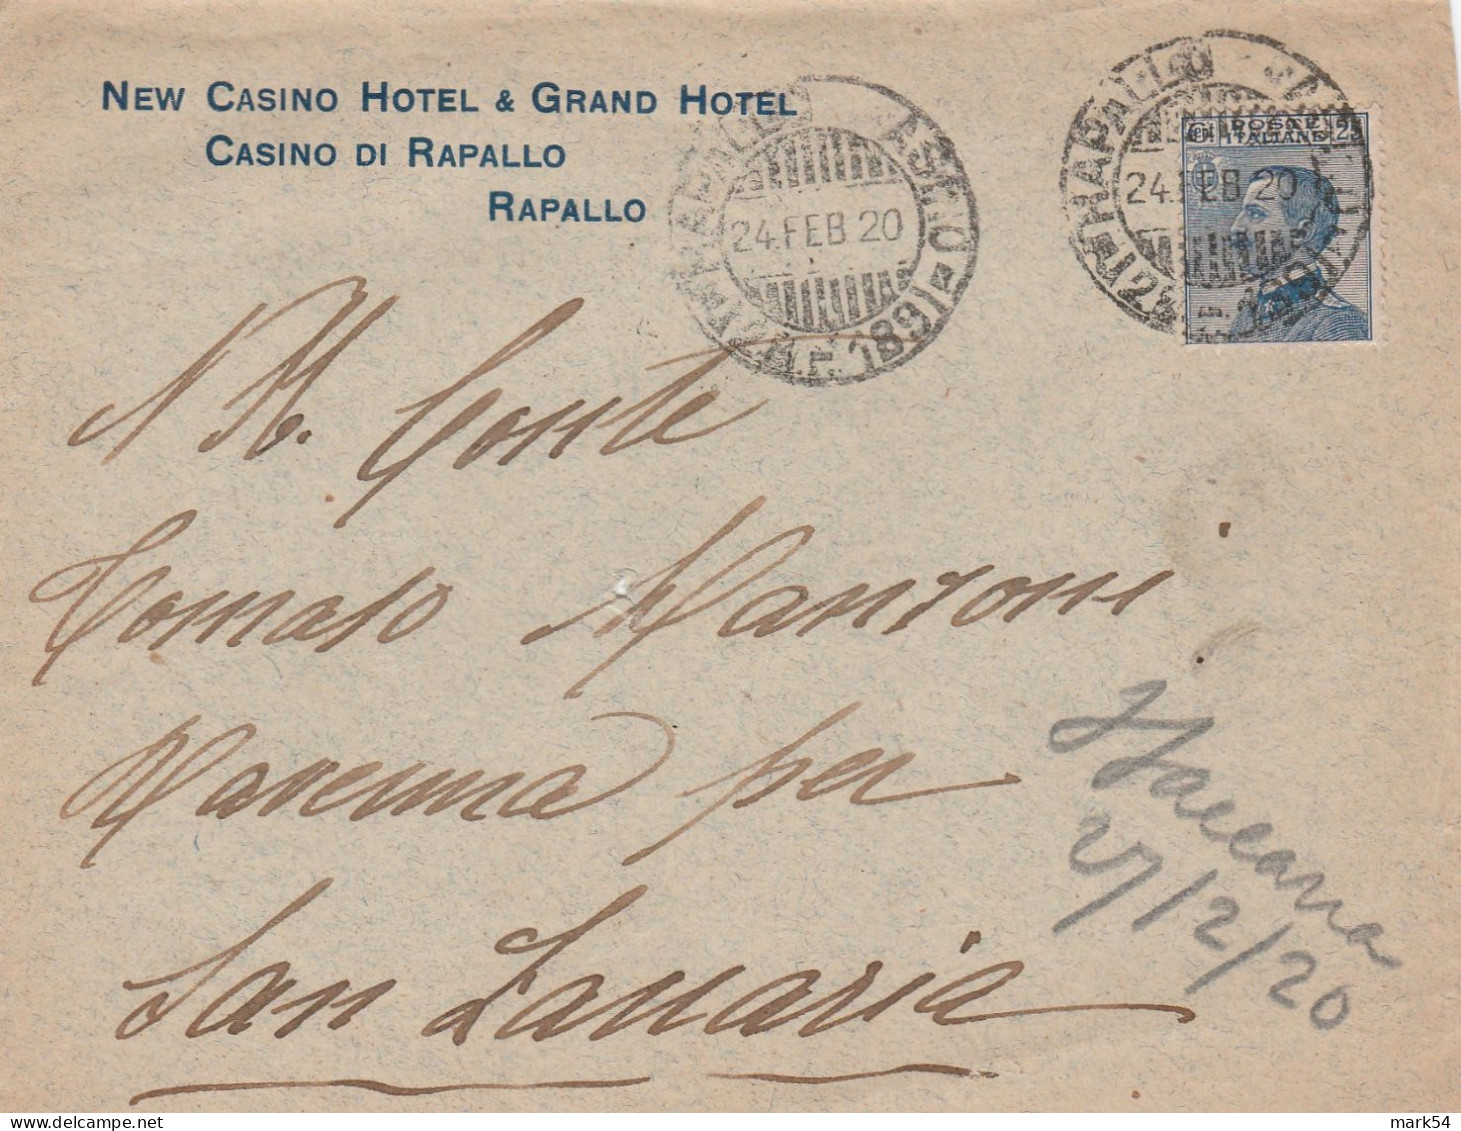 New Casino Hotel & Grand Hotel
Casino di Rapallo
Rapallo
RAPALLO
CASINO
24.FEB 20
1891
RAPALLO
24.FEB 20
POSTE
ITALIANE
25
N. H. Conte
Tomaso Manzoni
Ravenna per
San Zaccaria
27/2/20
mark54